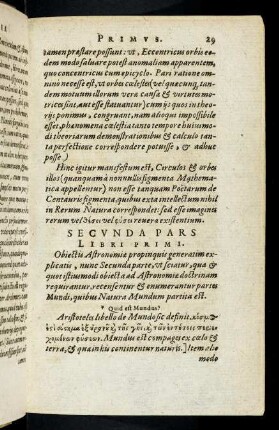 PRIMVS. 29
tamen præstare possunt: vt, Eccentricus orbis eo-
dem modo saluare potest anomaliam apparentem,
quo concentricus cum epicyclo. Pari ratione om
ninò necesse est, vt orbes cælestes (vel quæcunq; tan-
dem motuum illorum vera causa & virtutes mo-
trices sint, aut esse statuantur) cum ijs quos in theo-
rijs ponimus, congruant, nam alioqui impossibile
esset, phænomena cælestia tanto tempore huiusmo-
di theoriarum demonstrationibus & calculo tan-
ta perfectione correspondere potuisse, & adhuc
posse)
Hinc igitur manifestum est, Circulos & orbes
illos (quanquam à nonnullis figmenta Mathema-
tica appellentur) non esse tanquam Poëtarum de
Centauris figmenta, quibus extra intellectum nihil
in Rerum Natura correspondet: sed esse imagines
rerum verè & reuera existentium.
SECVNDA PARS
LIBRI PRIMI.
Obiectis Astronomiæ propinquis generatim ex
plicatis, nunc Secunda parte, vt sciatur, quæ &
quot istiusmodi obiecta ad Astronomiæ doctrinam
requirantur, recensentur & enumerantur partes
Mundi, quibus Natura Mundum partita est.
* Quid est Mundus?
Aristoteles libello de Mundo sic definit,
Mundus est compages ex cælo &
terra, & quæ in his continentur naturis.] Item alio
modo